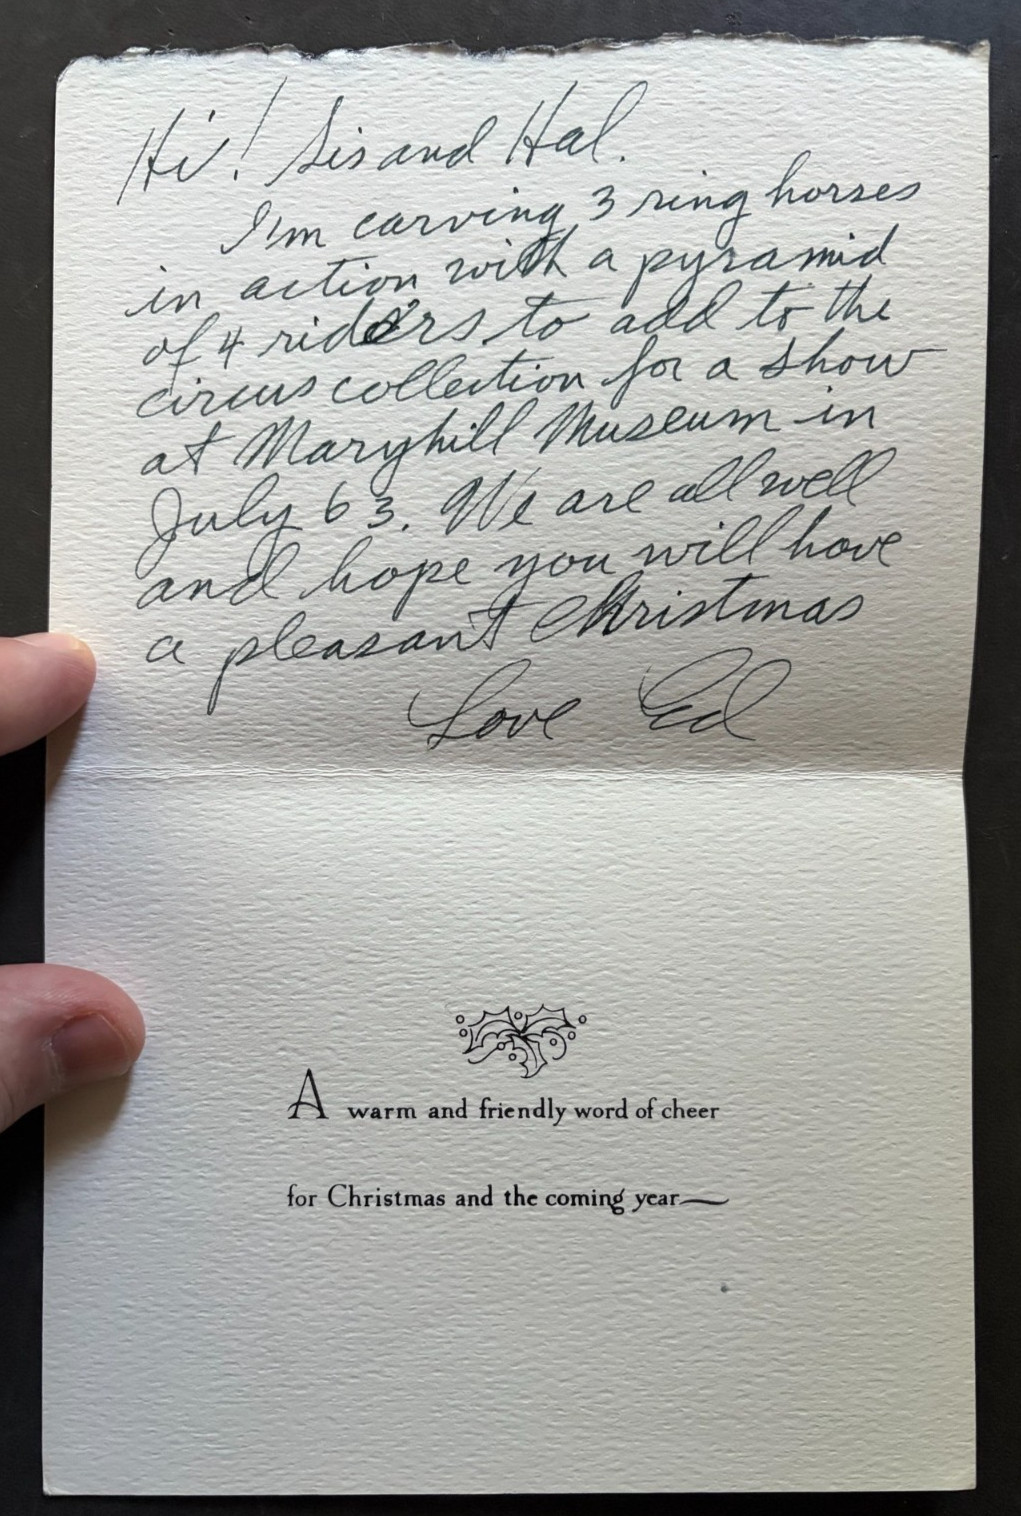 Hi! Sis and Hal.
I'm carving 3 ring horses
in action with a pyramid
of 4 riders to add to the
circus collection for a show
at Maryhill Museum in
July 63. We are all well
and hope you will have
a pleasant Christmas
Love Ed
A warm and friendly word of cheer
for Christmas and the coming year—